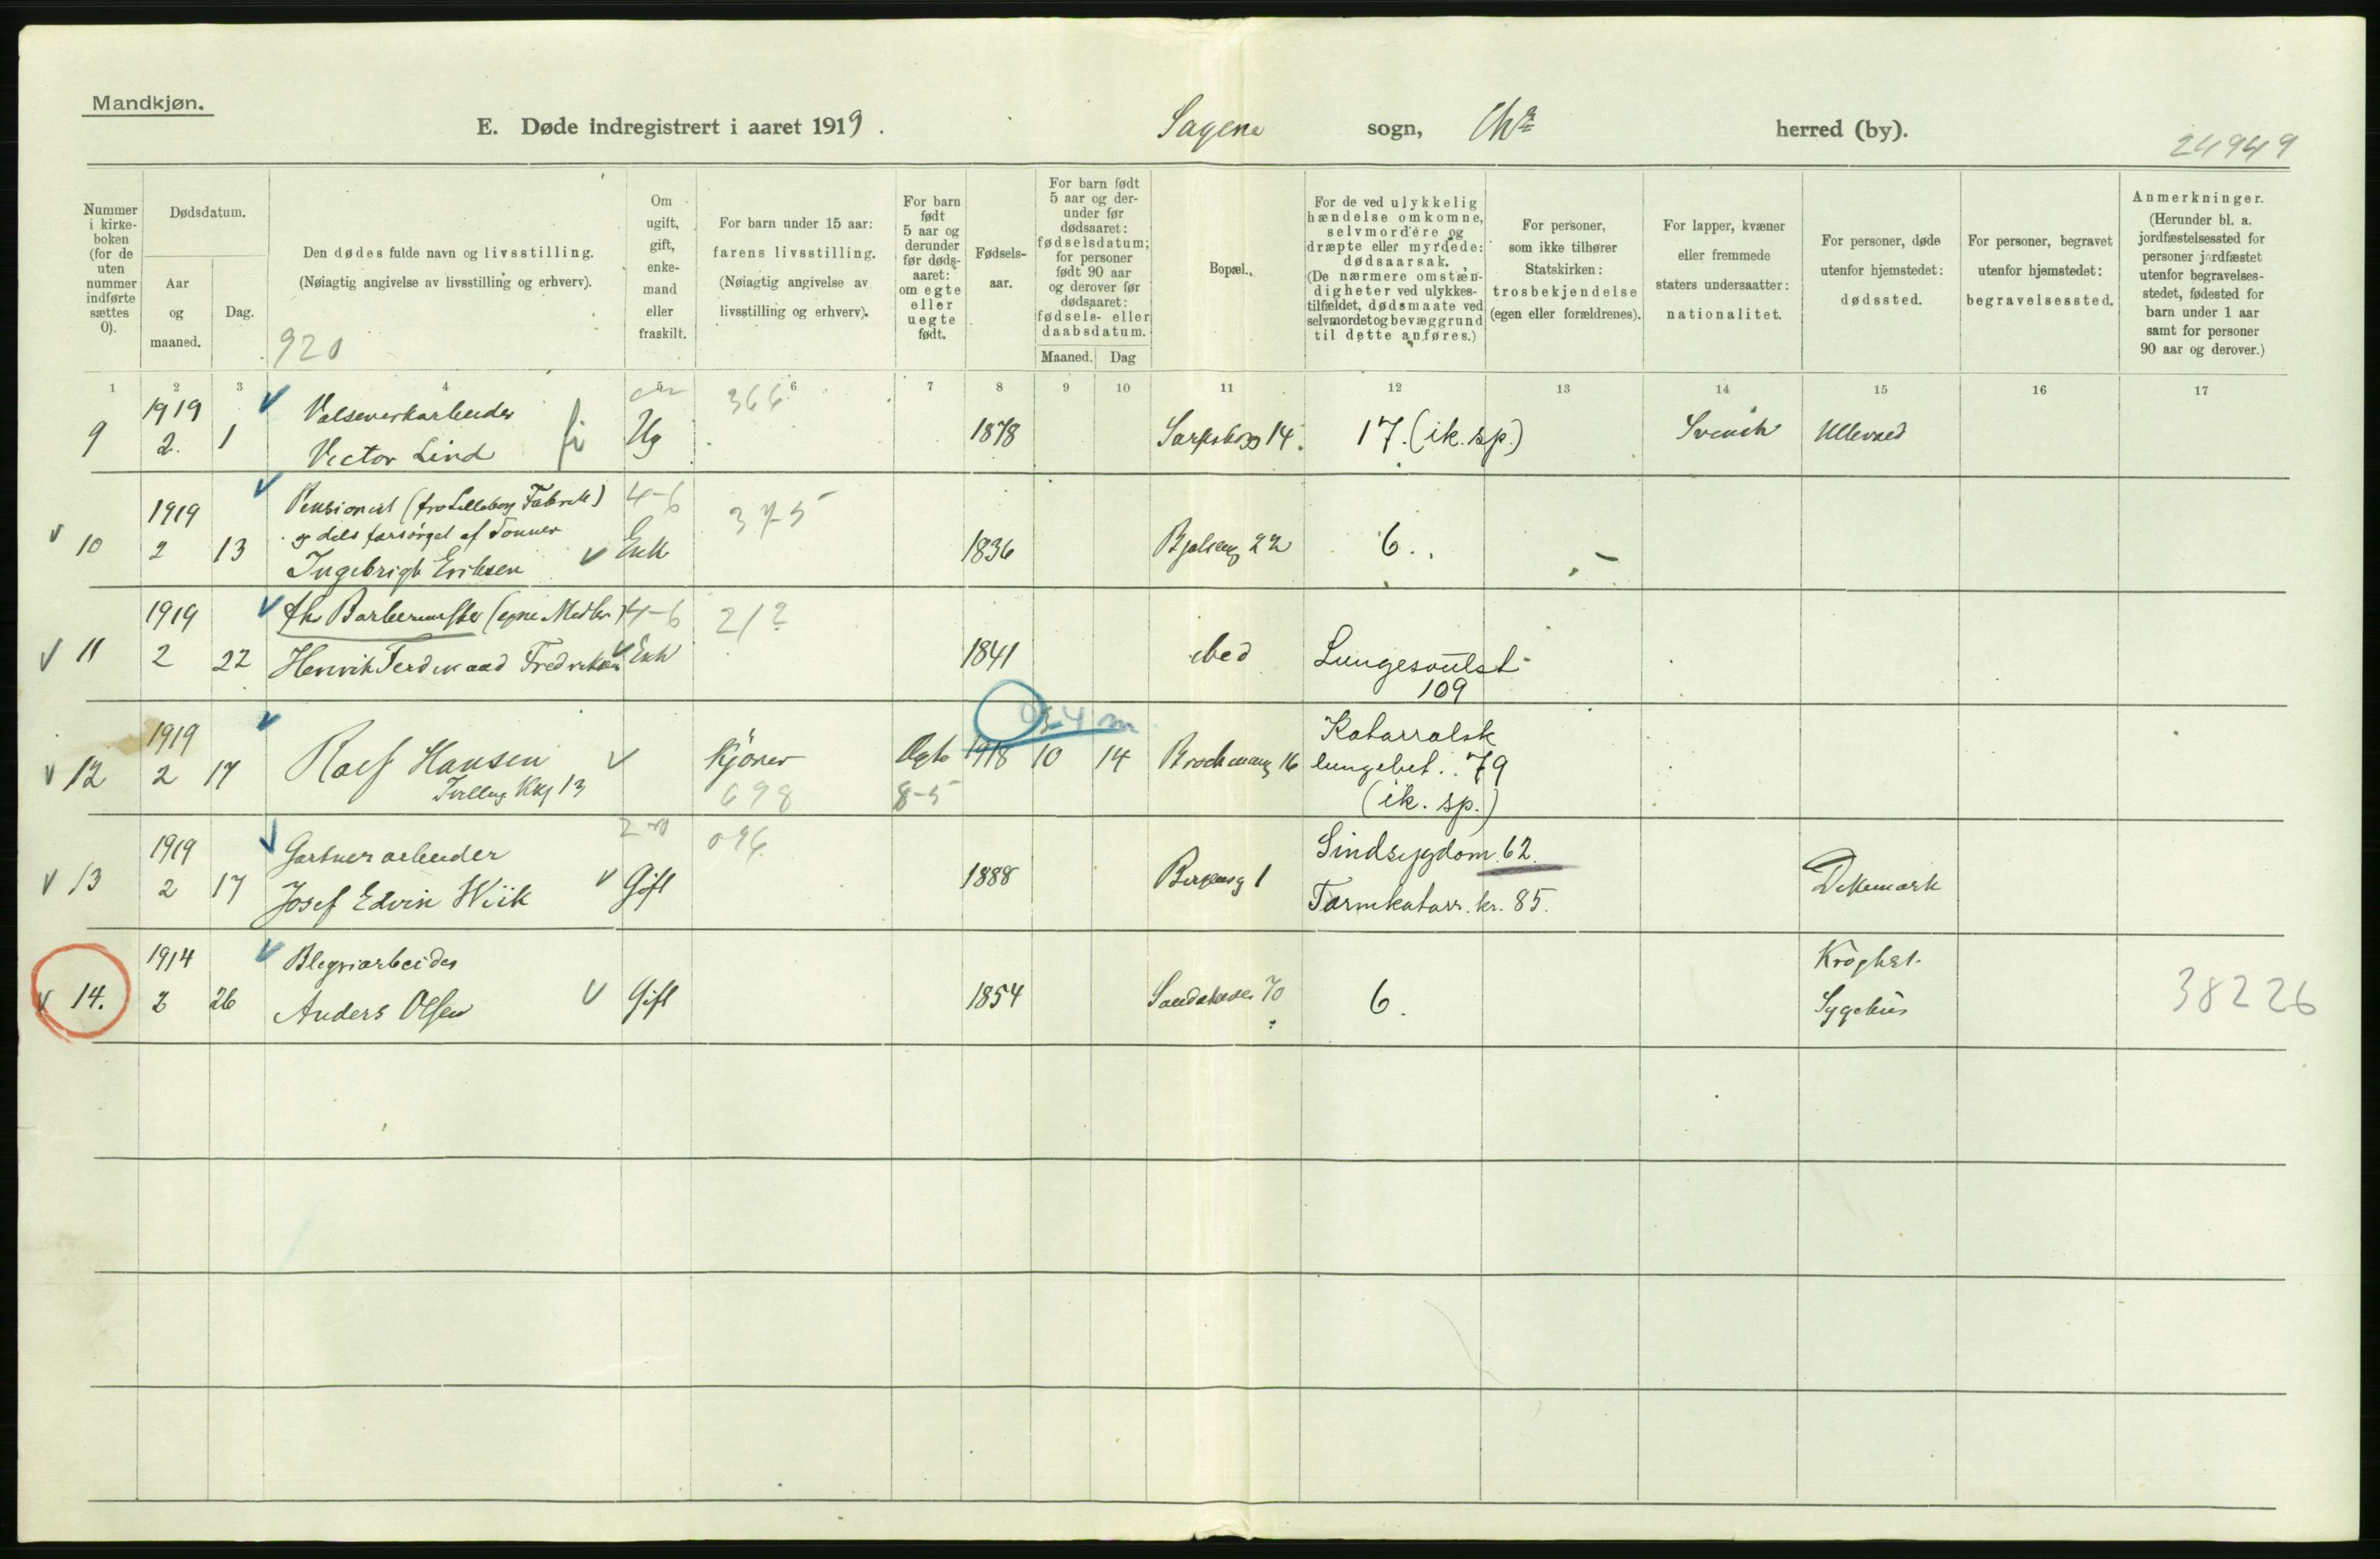 Mandkjøn.
E. Døde indregistrert i aaret 1919.
Sagene sogn, Chra herred (by).
24949
Nummer i kirkeboken (for de uten nummer indførte sættes 0).
Dødsdatum.
Aar og maaned.
Dag.
Den dødes fulde navn og livsstilling.
(Nøiagtig angivelse av livsstilling og erhverv).
920
Om ugift, gift, enkemand eller fraskilt.
For barn under 15 aar:
farens livsstilling.
(Nøiagtig angivelse av livsstilling og erhverv).
For barn født 5 aar og derunder før dødsaaret: om egte eller uegte født.
Fødselsaar.
For barn født 5 aar og derunder før dødsaaret: fødselsdatum; for personer født 90 aar og derover før dødsaaret: fødsels- eller daabsdatum.
Maaned.
Dag
Bopæl.
For de ved ulykkelig hændelse omkomne, selvmordere og dræpte eller myrdede: dødsaarsak.
(De nærmere omstændigheter ved ulykkestilfældet, dødsmaate ved selvmordet og bevæggrund til dette anføres.)
For personer, som ikke tilhører Statskirken:
trosbekjendelse
(egen eller forældrenes).
For lapper, kvæner eller fremmede staters undersaatter:
nationalitet.
For personer, døde utenfor hjemstedet:
dødssted.
For personer, begravet utenfor hjemstedet:
begravelsessted.
Anmerkninger.
(Herunder bl. a. jordfæstelsessted for personer jordfæstet utenfor begravelsesstedet, fødested for barn under 1 aar samt for personer 90 aar og derover.)
1 2 3 4 5 6 7 8 9 10 11 12 13 14 15 16 17
1919 Valseverkarbeider 366
9 2. 1 Victor Lind Ug 1878 Sarpsborgg 14. 17. (ik. sp.) Svensk Ullevaal
1919 Pensionist (fra Lilleborg Fabrik) 4-6 375
og dels forsørget af Sønner
10 2 13 Ingebrigt Eriksen Enk 1836 Bjølseng 22 6.
1919 fhv Barbermester (egne Midler) 4-6 212
11 2 22 Henrik Ferdinand Fredriksen Enk 1841 ibed Lungesvulst
109
0-4 m
1919 Katarralsk
12 2 17 Rolf Hansen Kjører Egte 1918 10 14 Brochmansg 16 lungebet. 79
Tvilling Kkj 13 698 8-5 (ik. sp.)
1919 Gartnerarbeider Sindsygdom. 62.
13 2 17 Josef Edvin Wiik Gift 1888 Bergensg 1 Dikemark
Tarmkatarr. kr. 85.
1914 Blegriarbeider Kroghst.
14. 2 26 Anders Olsen Gift 1854 70 6. Sygehus 38226